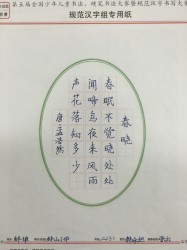 第五届全国少年儿童书法、硬笔书法大赛暨规范汉字书写大赛
规范汉字组专用纸
春晓
春眠不觉晓处处
闻啼鸟夜来风雨
声花落知多少
唐孟浩然